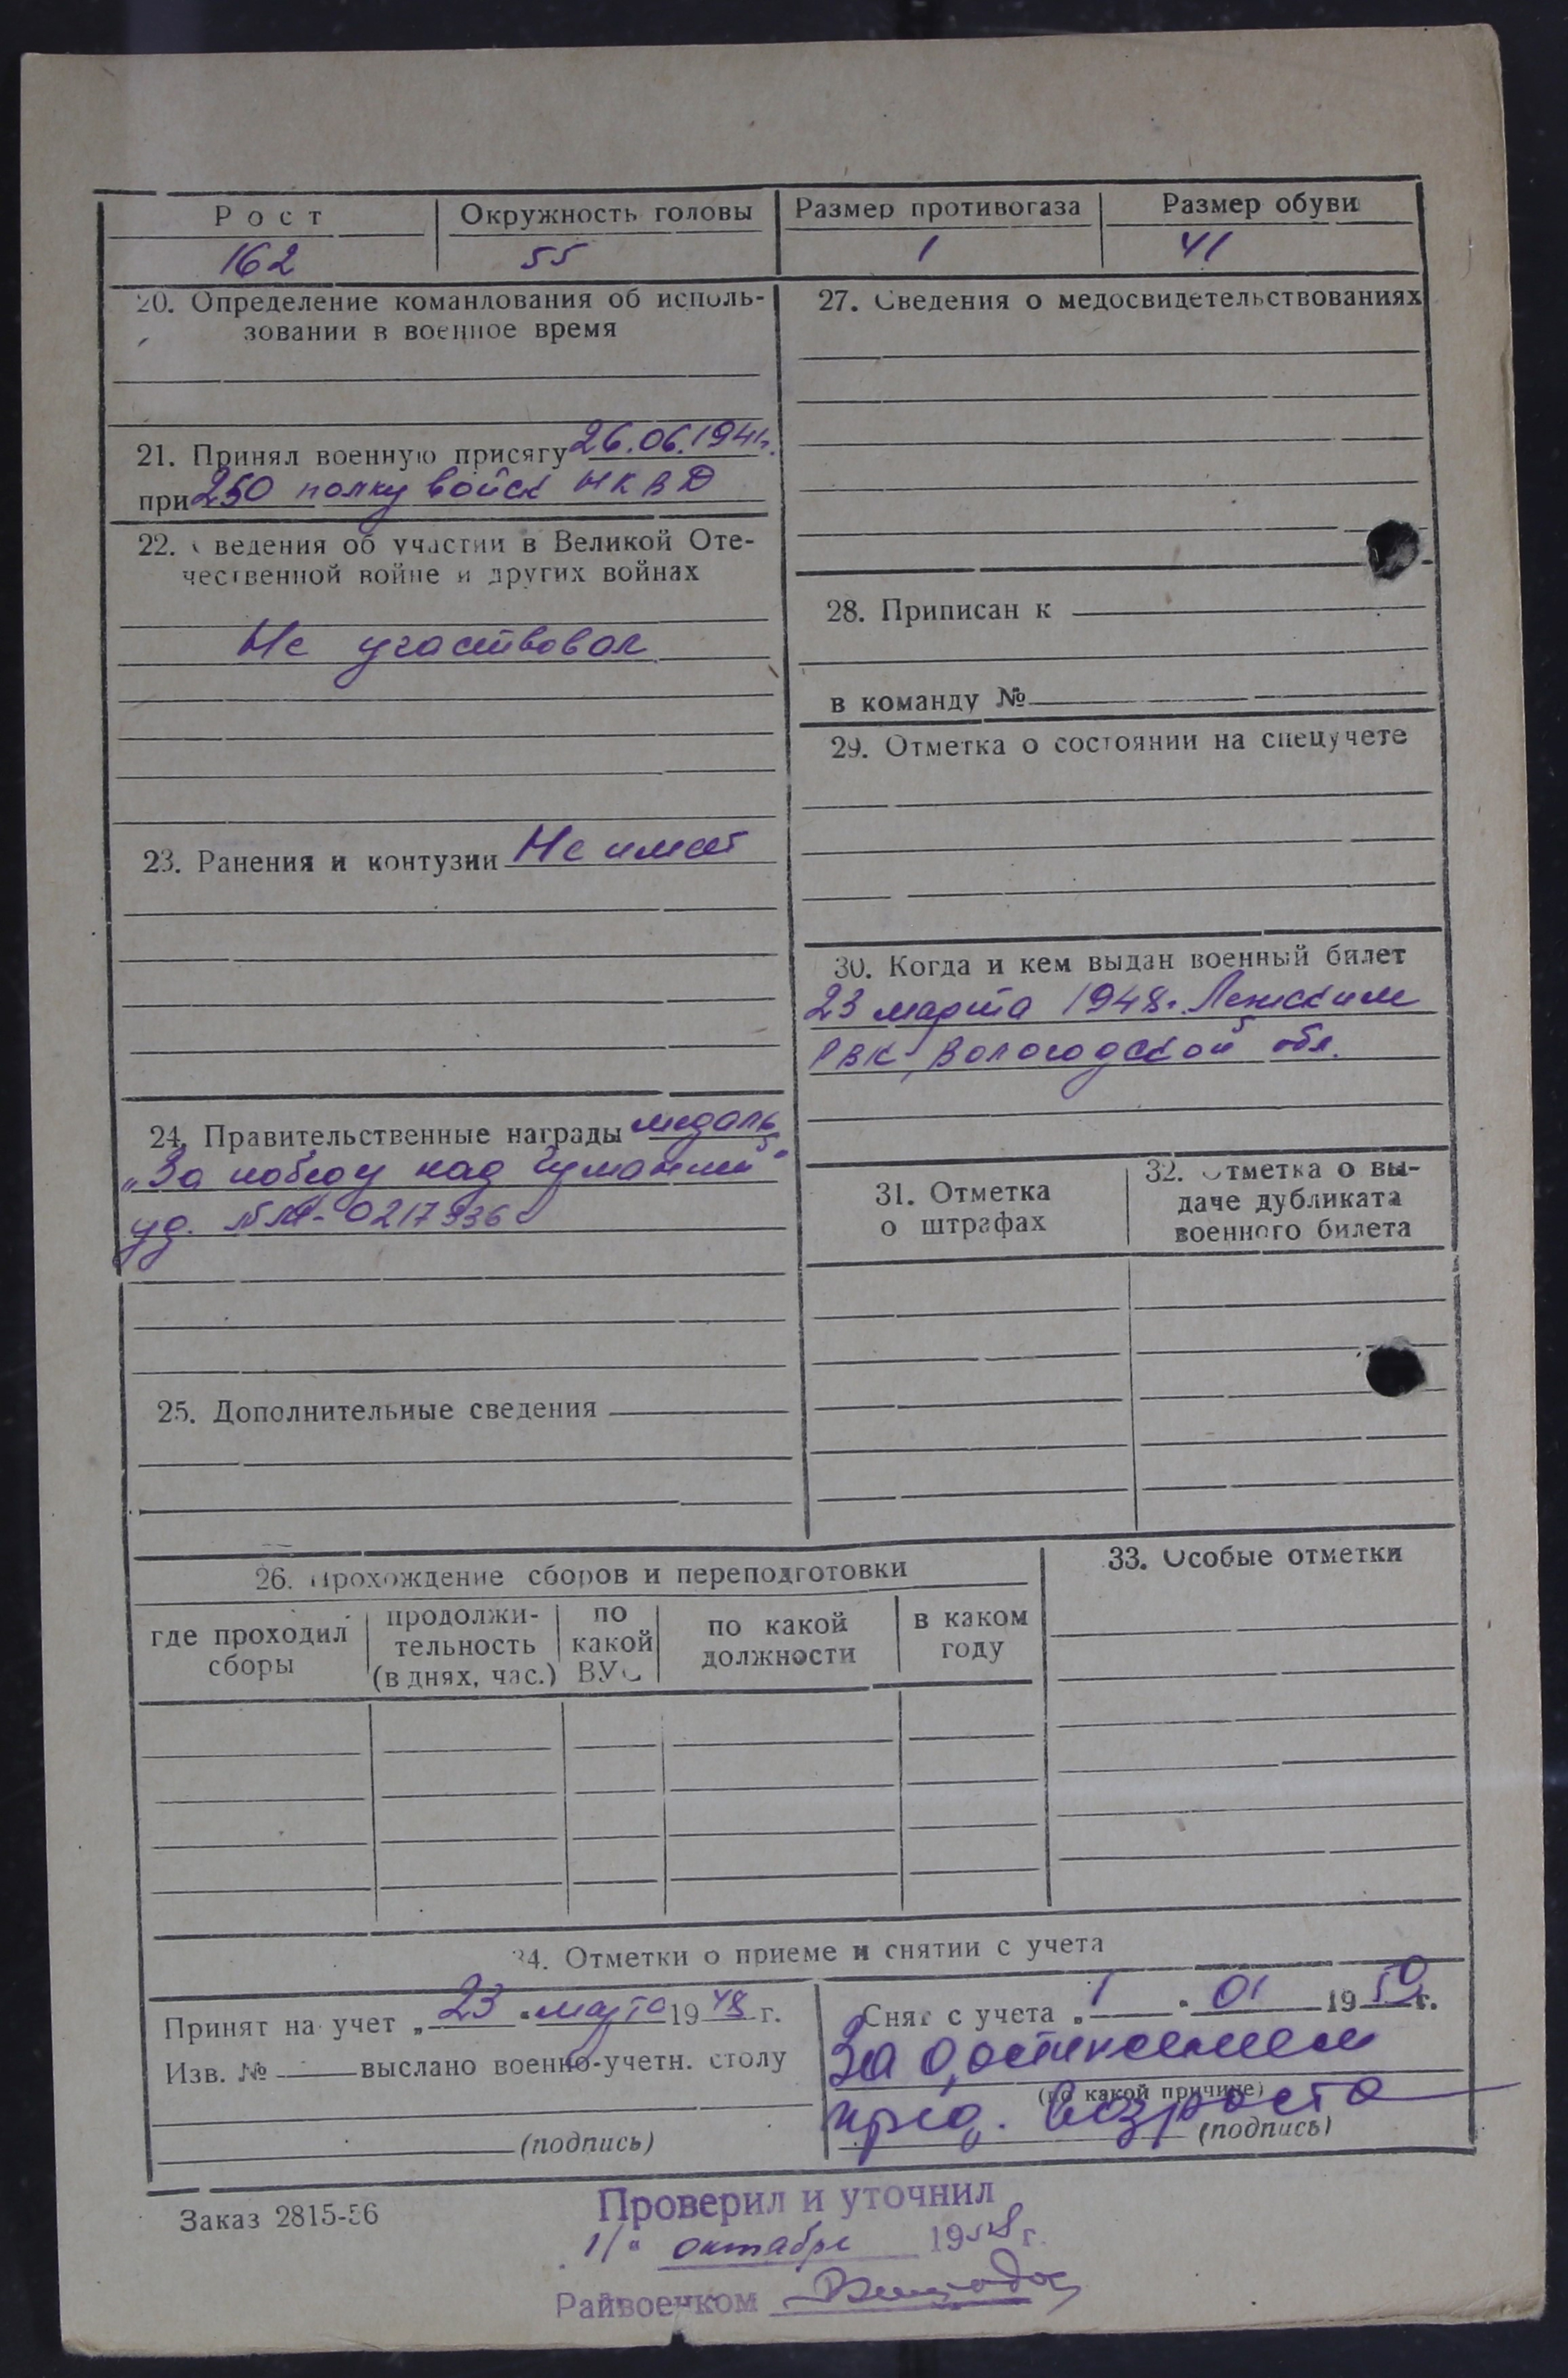 Рост Окружность головы Размер противогаза Размер обуви
162 55 1 41
20. Определение командования об исполь-
зовании в военное время
21. Принял военную присягу 26.06.1941г.
при 250 полку войск НКВД
22. Сведения об участии в Великой Оте-
чественной войне и других войнах
Не участвовал
23. Ранения и контузии Не имеет
24. Правительственные награды медаль
„За победу над Германией"
уд. № 0217936
25. Дополнительные сведения
27. Сведения о медосвидетельствованиях
28. Приписан к
в команду №
29. Отметка о состоянии на спецучете
30. Когда и кем выдан военный билет
23 марта 1948г. Ленским
РВК, Вологодской обл.
31. Отметка
о штрафах
32. Отметка о вы-
даче дубликата
военного билета
26. Прохождение сборов и переподготовки
где проходил
сборы
продолжи-
тельность
(в днях, час.)
по
какой
ВУС
по какой
должности
в каком
году
33. Особые отметки
34. Отметки о приеме и снятии с учета
Принят на учет „23" марта 1948 г.
Изв. № выслано военно-учетн. столу
(подпись)
Снят с учета „1" 01 1950 г.
За достижением
(по какой причине)
пред. возраста
(подпись)
Заказ 2815-56
Проверил и уточнил
„1" октября 1958 г.
Райвоенком